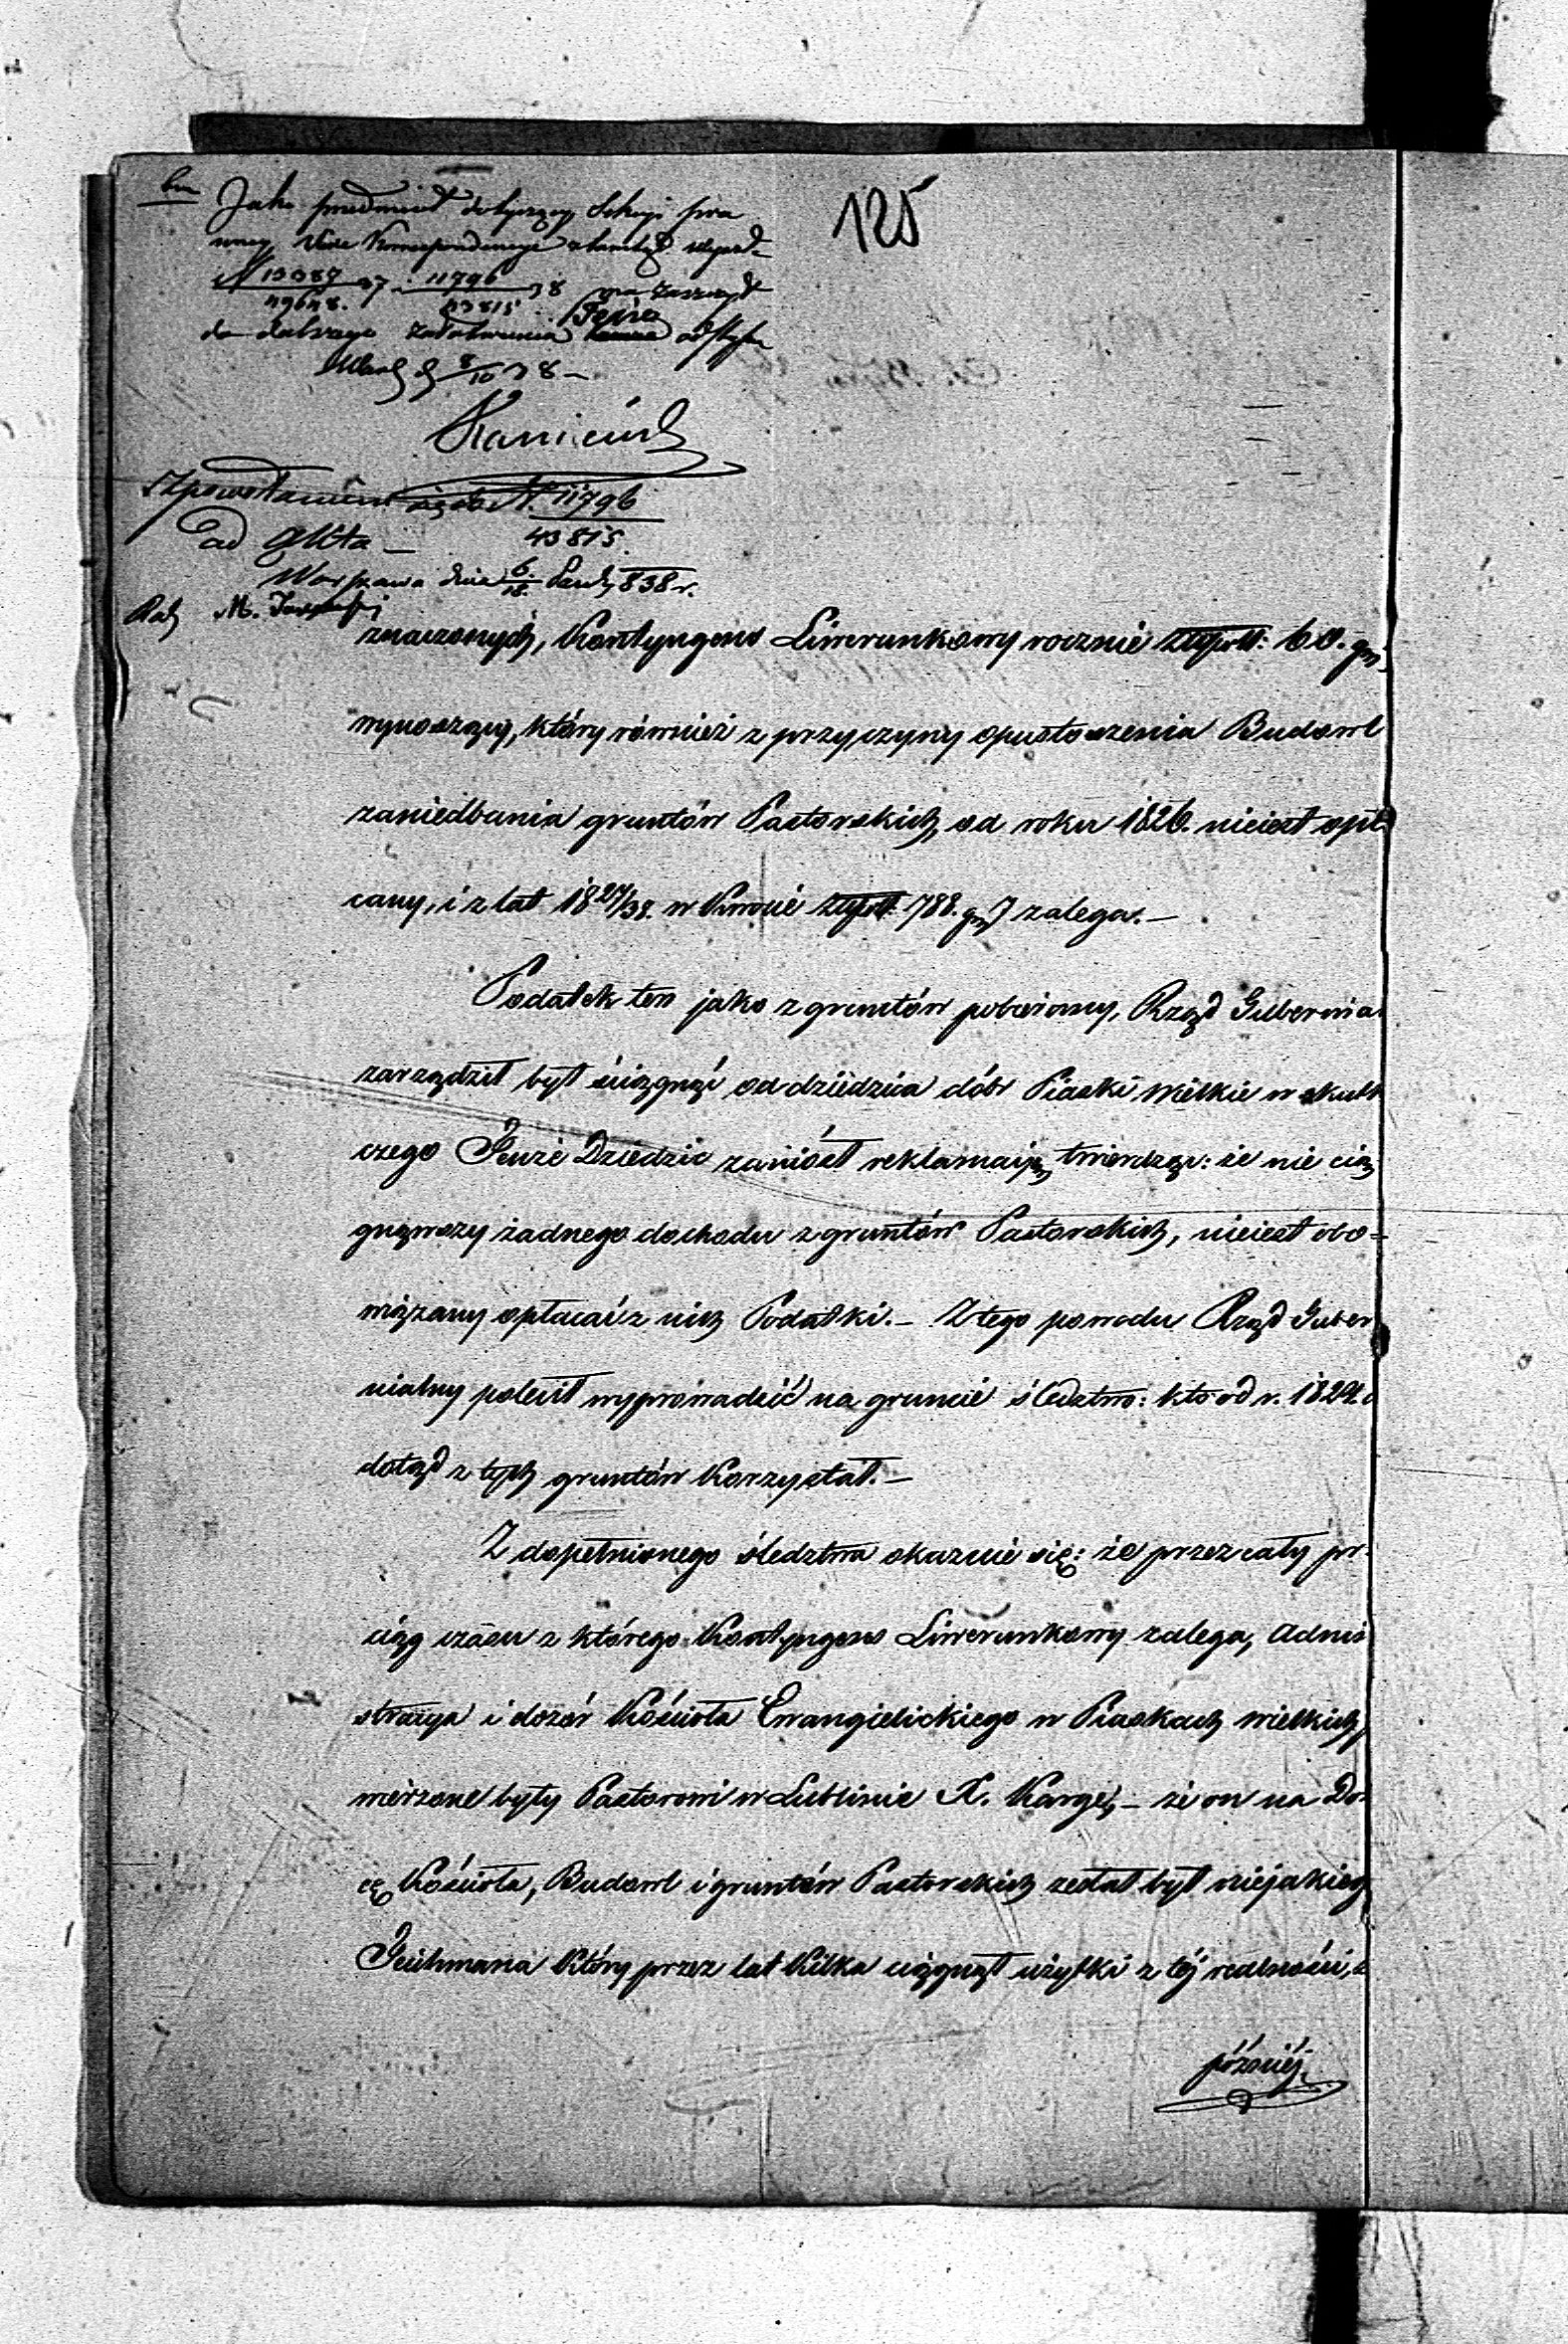 125
Jako przedmiot dotyczący Sekcyi pra
wney
N 13087 37 11796 38 ma zaszczyt
49648. 43815
do dalszego załatwienia
8/10 38 —
N. 11796
ad acta — 43815.
Warszawa dnia 6/18 838 r.
znaczonych, Kontyngens Liwerunkowy rocznie Złtpoll: 60. gr
wynoszący, który również z przyczyny opustoszenia Budowl
zaniedbania gruntów Pastorskich, od roku 1826. nieiest opł
cany, i z lat 1827/38. w Kwocie Złtpoll: 788. gr 7 zalega. —
Podatek ten jako z gruntów pobierany, Rząd Gubernia
zarządził był ściągnąć od dziedzica dóbr Piaski Wielkie w skutk
czego Tenże Dziedzic zaniósł reklamacyą twierdząc: że nie cią
gnąwszy żadnego dochodu z gruntów Pastorskich, nieiest obo-
wiązany opłacać z nich Podatki. — Z tego powodu Rząd Guber
nialny polecił wyprowadzić na gruncie śledztwo: kto od r. 1824.
dotąd z tych gruntów Korzystał. —
Z dopełnionego śledztwa okazuie się: że przez cały pr
ciąg czasu z którego Kontyngens Liwerunkowy zalega, Admi
stracya i dozór Kościoła Ewangielickiego w Piaskach wielkich,
wierzone były Pastorowi w Lublinie X. Karge, — że on na Do
cę Kościoła, Budowl i gruntów Pastorskich zesłał był niejakieg
który przez lat Kilka ciągnął użytki z téj realności,
późniéj.